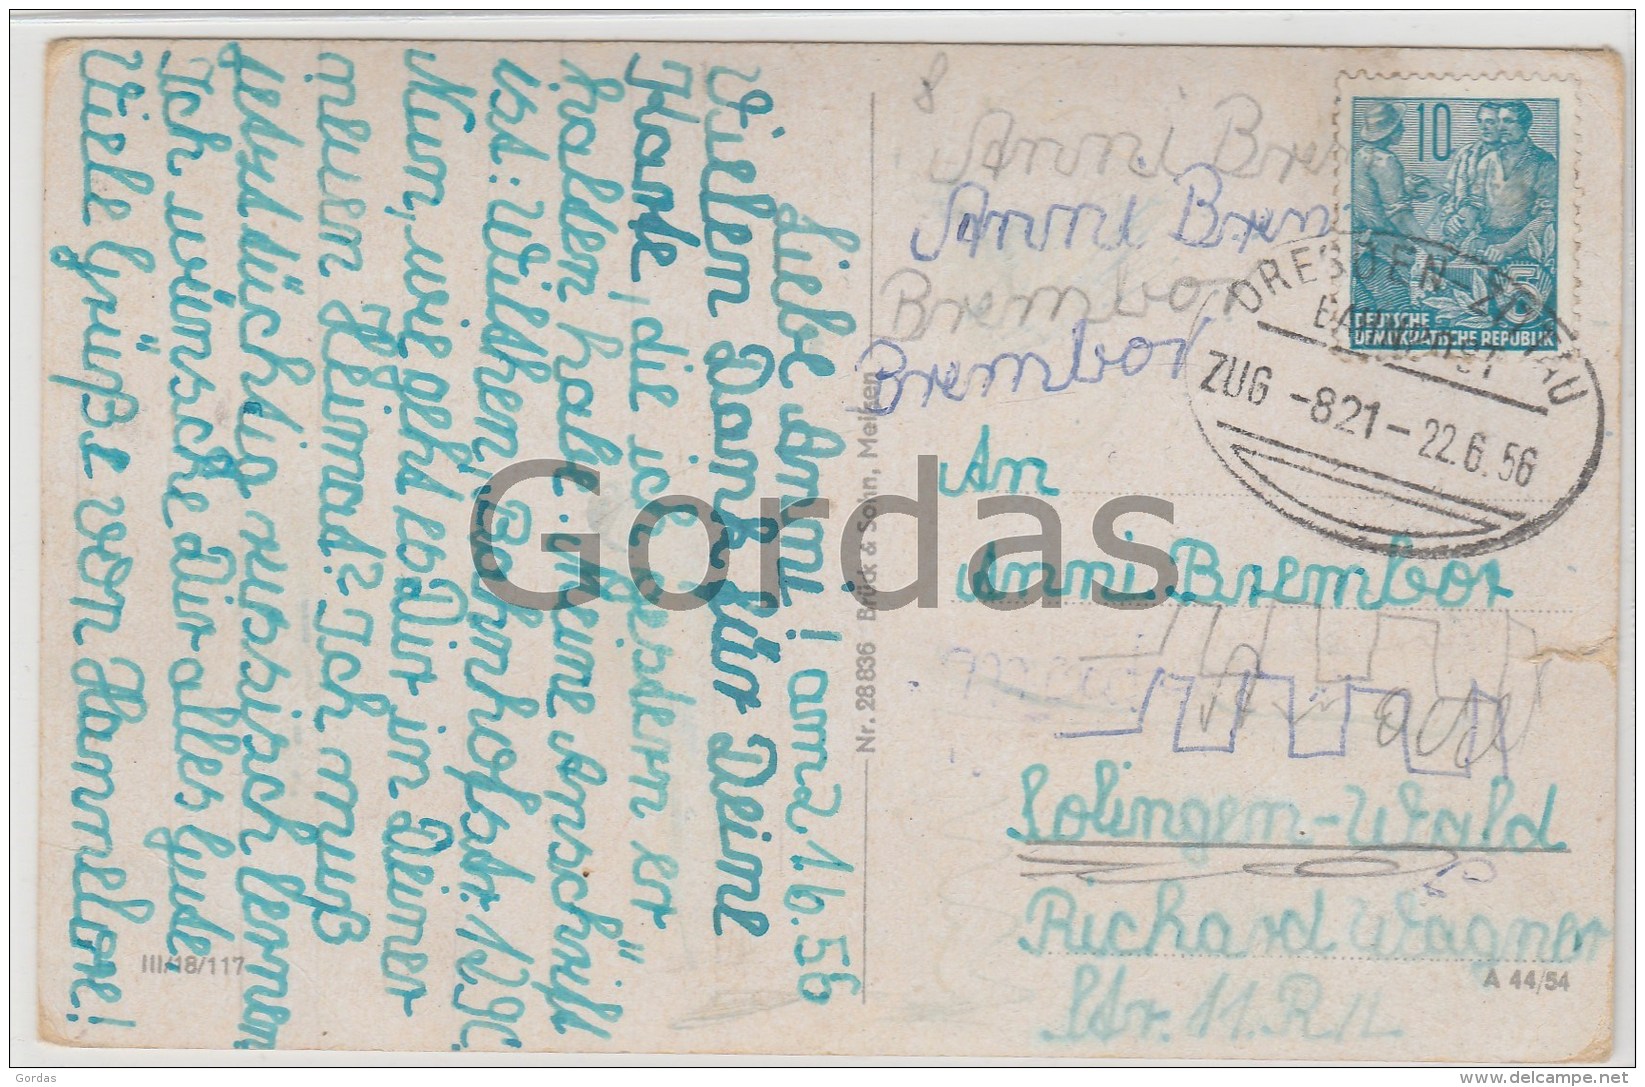 Liebe Anni! am 21.6.56
Vielen Dank für Deine
Karte, die ich gestern er
halten habe. Meine Anschrift
ist: Wilthen, Bahnhofstr. 12 
Nun, wie geht es Dir in Deiner
neuen Heimat? Ich muß
jetzt tüchtig russisch lernen
Ich wünsche Dir alles gute
Viele Grüße von Hannelore!
III/18/117
Nr. 28836 Brück & Sohn, Meißen
Anni Bre
Anni Brem
Brembor
Brembor
10
DEUTSCHE
DEMOKRATISCHE REPUBLIK
5
DRESDEN-ZITTAU
BAHNPOST
ZUG -821- 22.6.56
An
Anni Brembor
Solingen-Wald
Richard Wagner
Str. 11.
A 44/54
Gordas
Gordas
www.delcampe.net